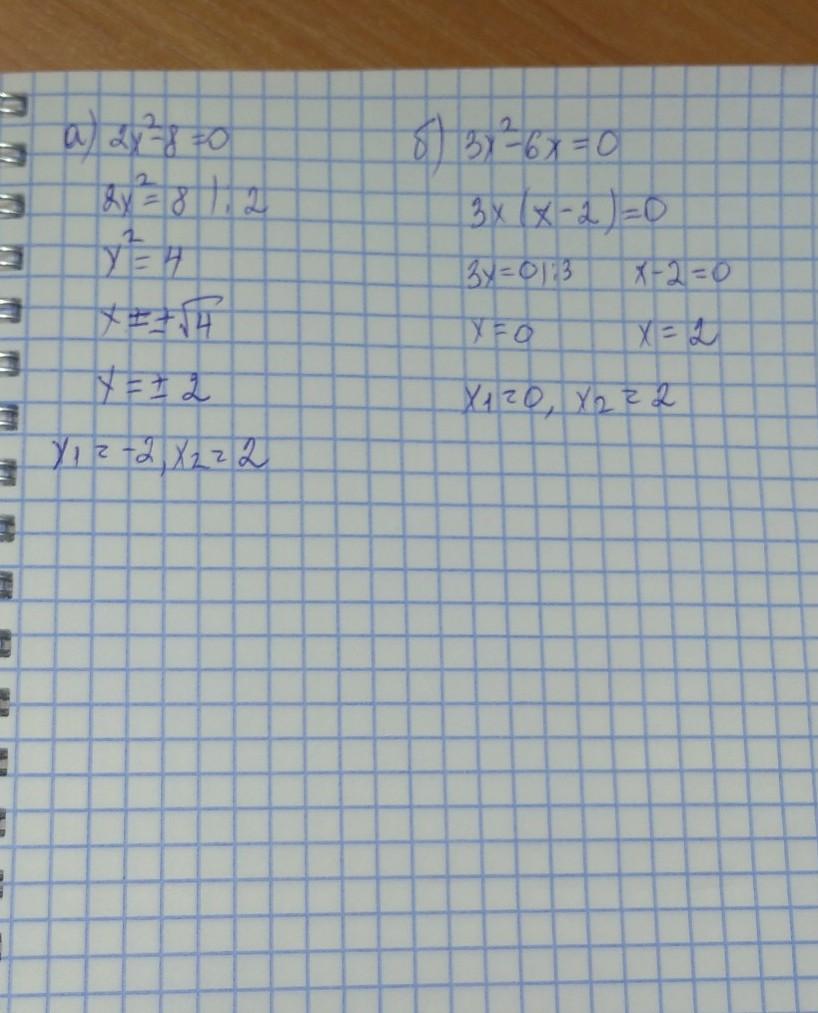 а) 2x²-8=0
2x²=8 |:2
x²=4
x=±√4
x=±2
x₁=-2, x₂=2
б) 3x²-6x=0
3x(x-2)=0
3x=0|:3 x-2=0
x=0 x=2
x₁=0, x₂=2